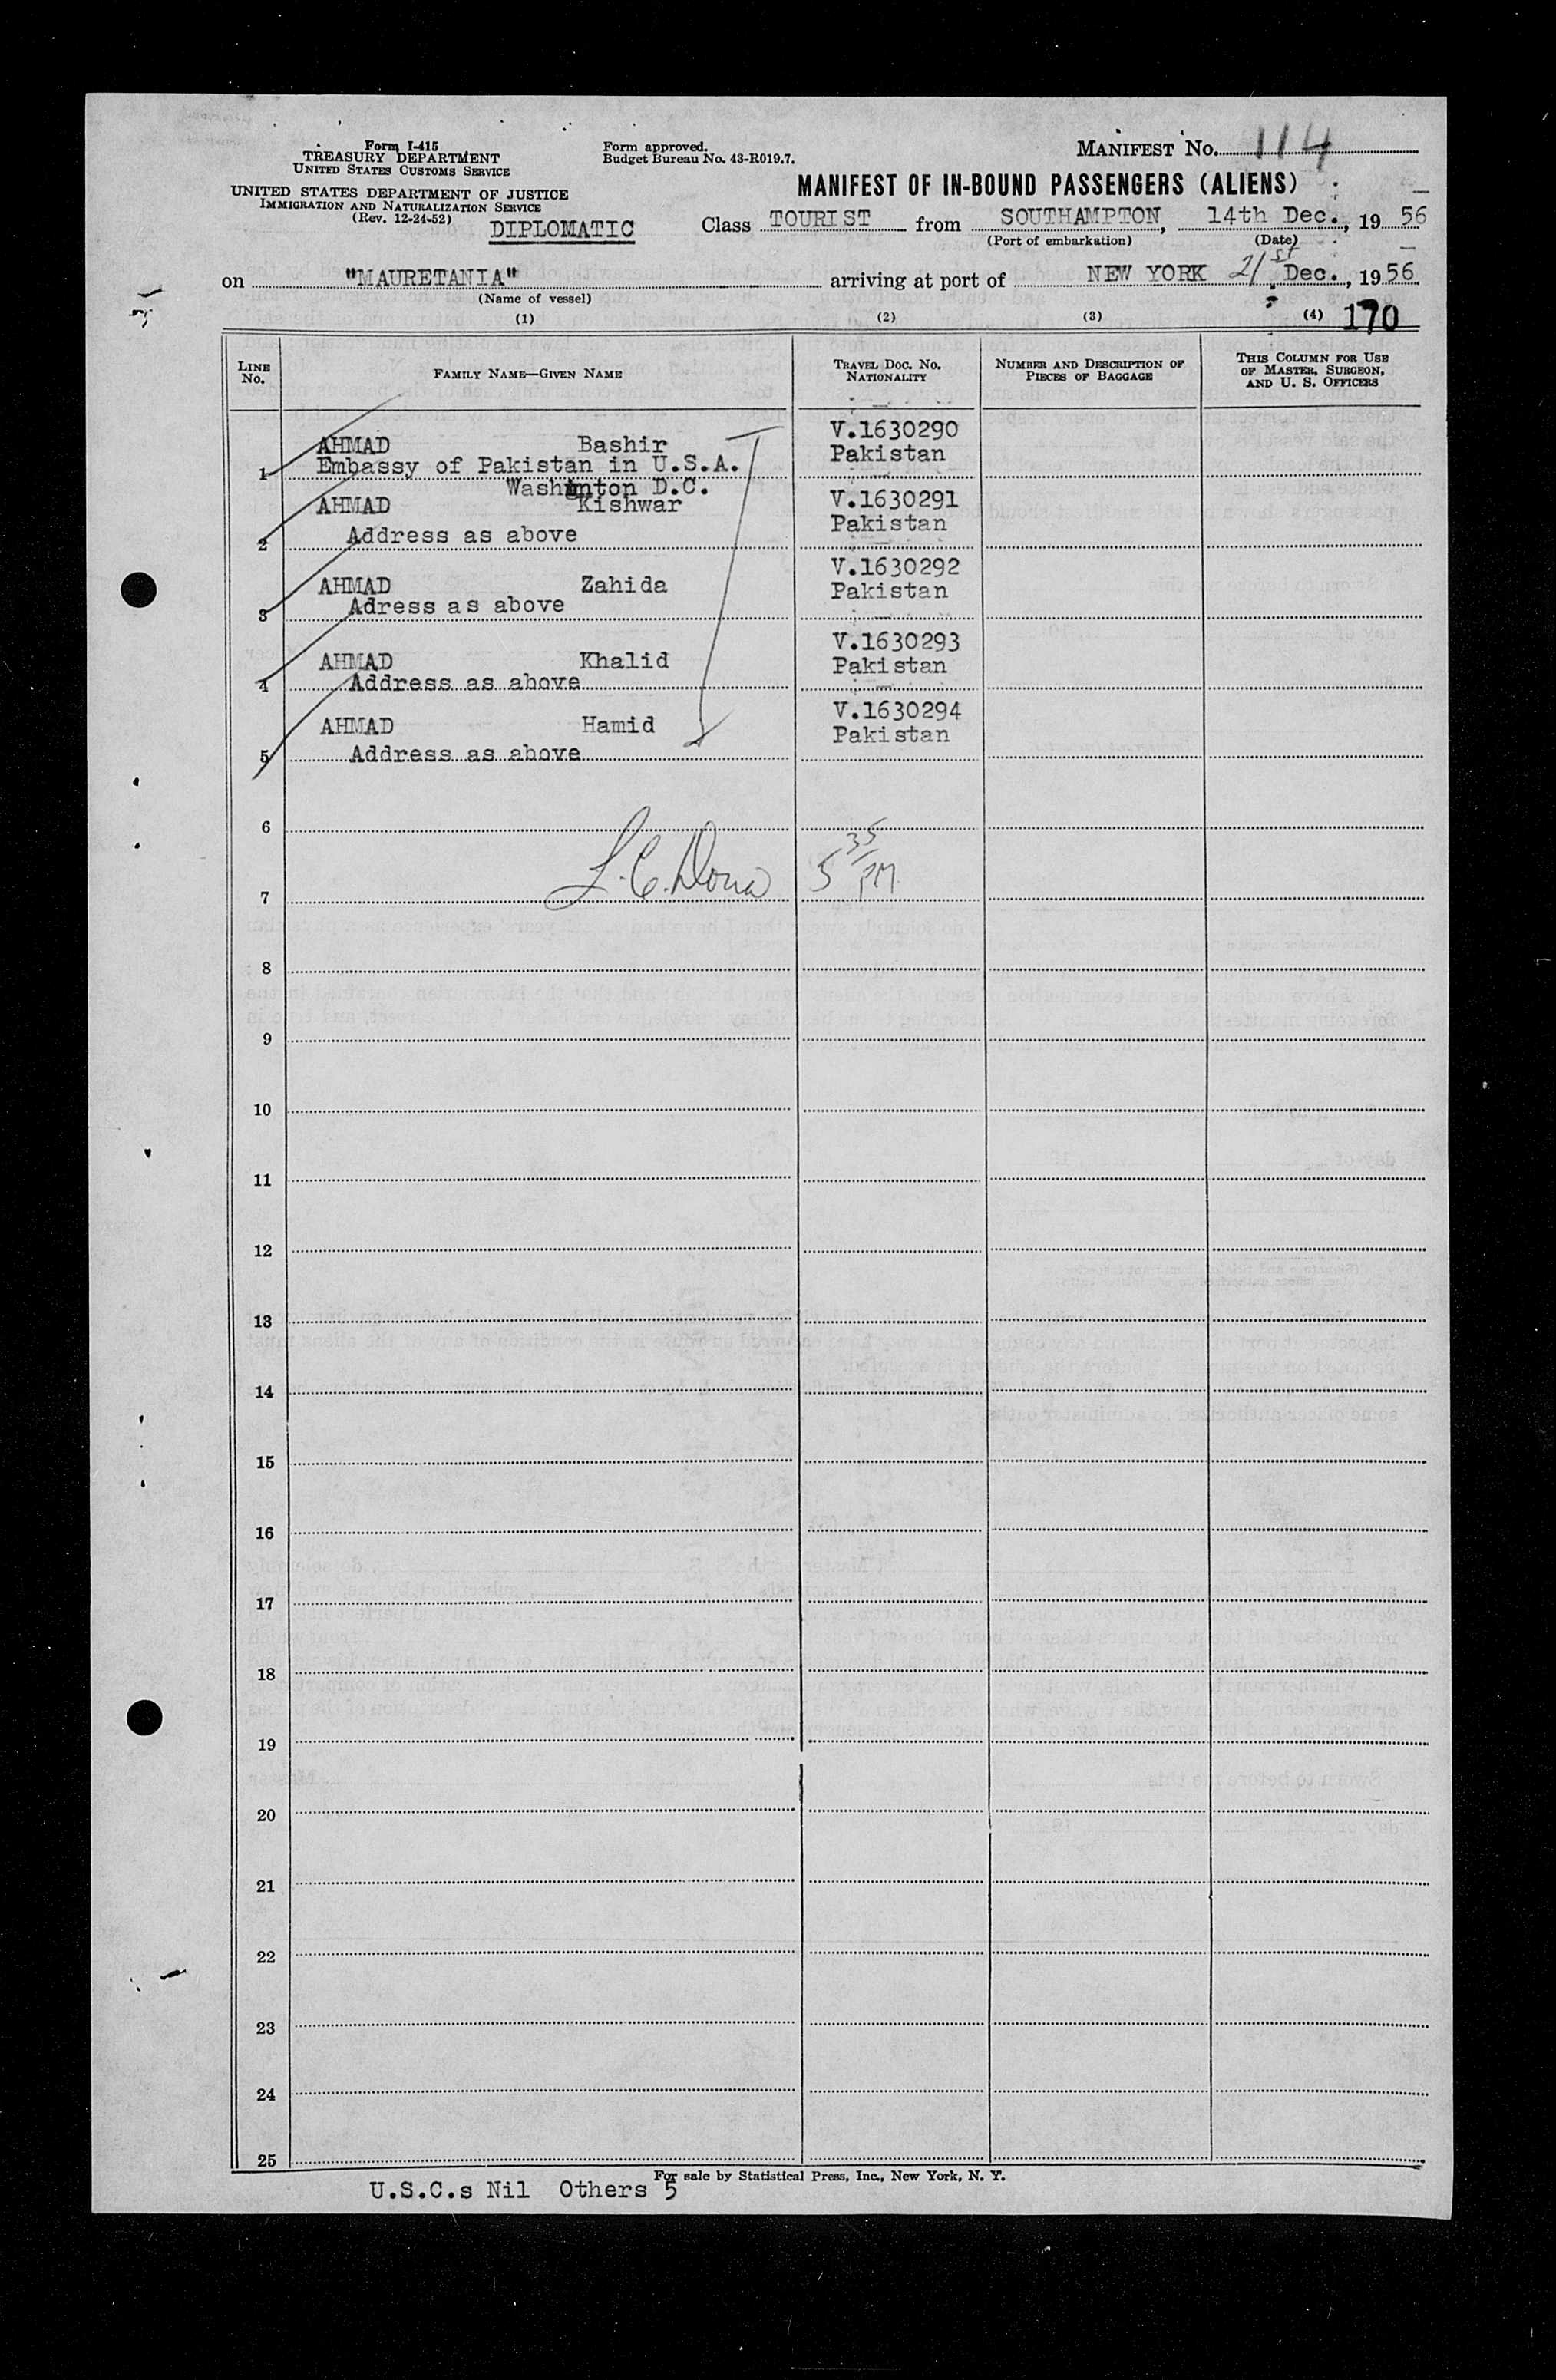 Form I-415
TREASURY DEPARTMENT
UNITED STATES CUSTOMS SERVICE
UNITED STATES DEPARTMENT OF JUSTICE
IMMIGRATION AND NATURALIZATION SERVICE
(Rev. 12-24-52)
DIPLOMATIC
Form approved.
Budget Bureau No. 43-R019.7.
MANIFEST No. 114
MANIFEST OF IN-BOUND PASSENGERS (ALIENS)
Class TOURIST from SOUTHAMPTON, 14th Dec., 19 56
(Port of embarkation) (Date)
on "MAURETANIA" arriving at port of NEW YORK 21st Dec., 19 56
(Name of vessel)
(1) (2) (3) (4) 170
LINE No. FAMILY NAME—GIVEN NAME TRAVEL DOC. No. NATIONALITY NUMBER AND DESCRIPTION OF PIECES OF BAGGAGE THIS COLUMN FOR USE OF MASTER, SURGEON, AND U. S. OFFICERS
AHMAD Bashir V.1630290
1 Embassy of Pakistan in U.S.A. Pakistan
Washington D.C.
AHMAD Kishwar V.1630291
2 Address as above Pakistan
AHMAD Zahida V.1630292
3 Adress as above Pakistan
AHMAD Khalid V.1630293
4 Address as above Pakistan
AHMAD Hamid V.1630294
5 Address as above Pakistan
6
7 5 35 PM
8
9
10
11
12
13
14
15
16
17
18
19
20
21
22
23
24
25
For sale by Statistical Press, Inc., New York, N. Y.
U.S.C.s Nil Others 5